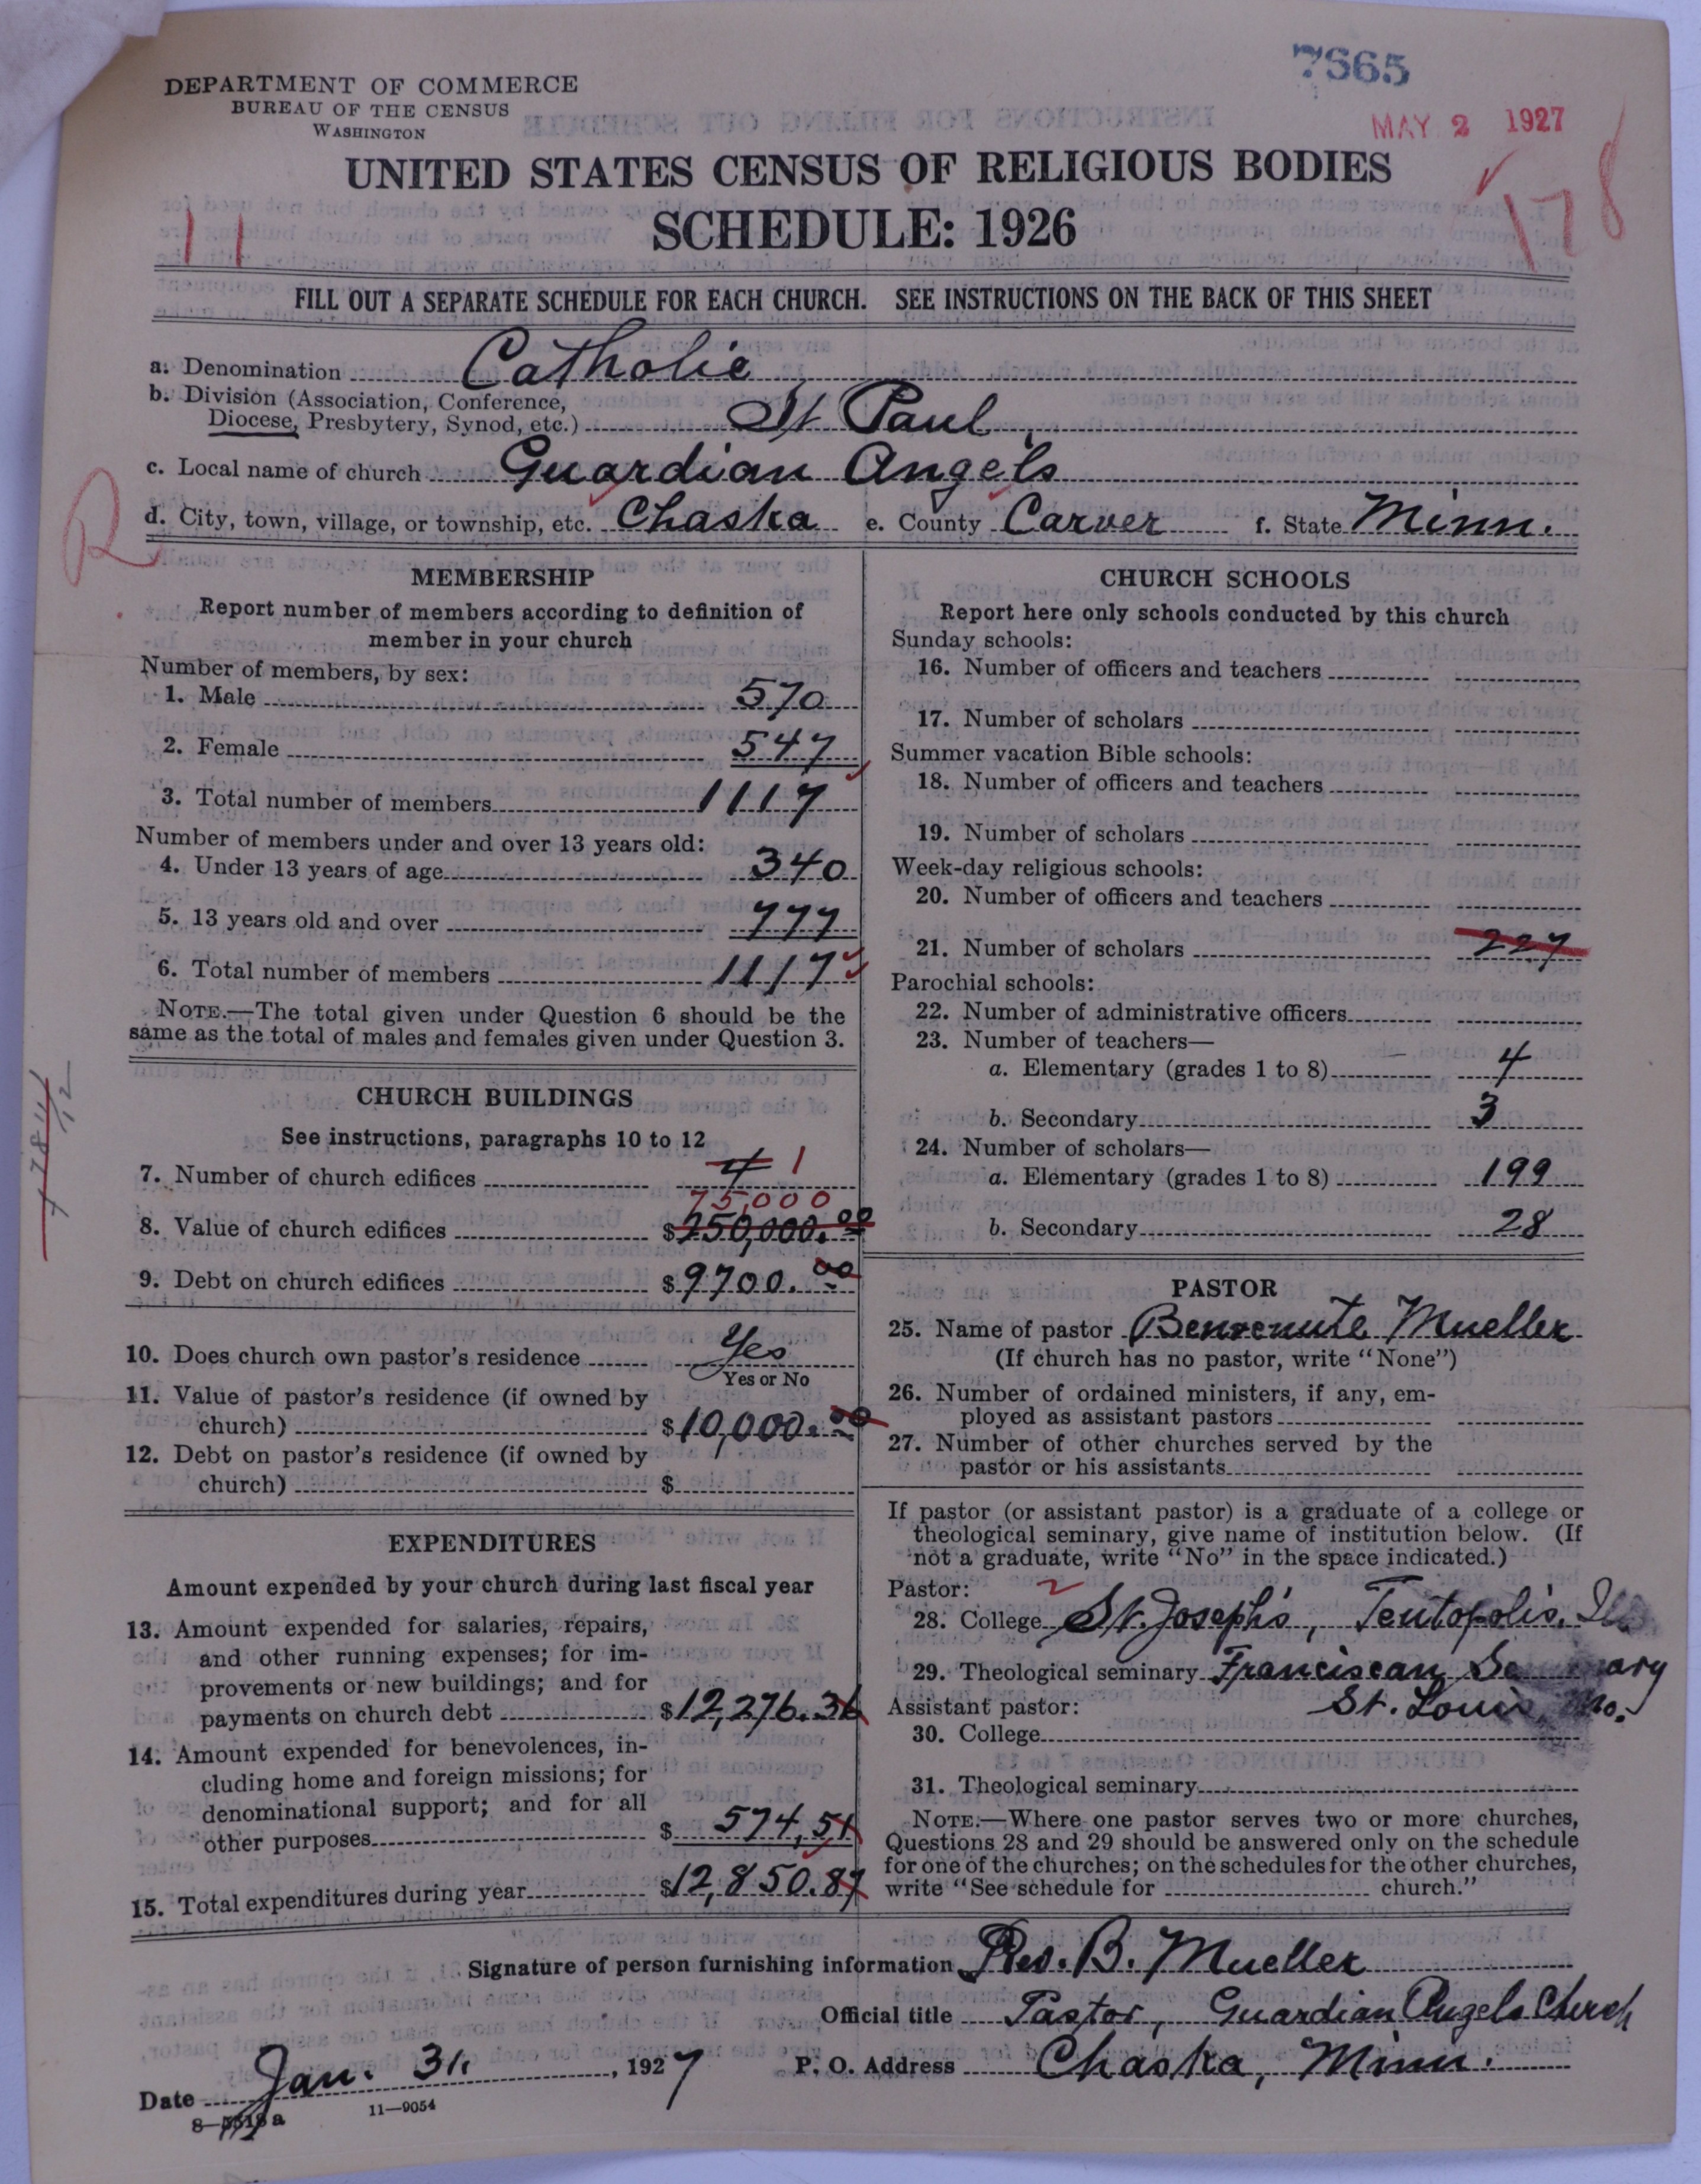 7665
DEPARTMENT OF COMMERCE
BUREAU OF THE CENSUS
WASHINGTON
MAY 2 1927
UNITED STATES CENSUS OF RELIGIOUS BODIES
SCHEDULE: 1926
11
178
FILL OUT A SEPARATE SCHEDULE FOR EACH CHURCH. SEE INSTRUCTIONS ON THE BACK OF THIS SHEET
a. Denomination Catholic
b. Division (Association, Conference,
Diocese, Presbytery, Synod, etc.) St Paul
c. Local name of church Guardian Angels
R
d. City, town, village, or township, etc. Chaska e. County Carver f. State Minn.
MEMBERSHIP
Report number of members according to definition of
member in your church
Number of members, by sex:
1. Male 570
2. Female 547
3. Total number of members 1117
Number of members under and over 13 years old:
4. Under 13 years of age 340
5. 13 years old and over 777
6. Total number of members 1117
NOTE.—The total given under Question 6 should be the
same as the total of males and females given under Question 3.
CHURCH BUILDINGS
See instructions, paragraphs 10 to 12
7. Number of church edifices 4 1
75,000
8. Value of church edifices $250,000.00
9. Debt on church edifices $9700.00
10. Does church own pastor's residence Yes
Yes or No
11. Value of pastor's residence (if owned by
church) $10,000.00
12. Debt on pastor's residence (if owned by
church) $
EXPENDITURES
Amount expended by your church during last fiscal year
13. Amount expended for salaries, repairs,
and other running expenses; for im-
provements or new buildings; and for
payments on church debt $12,276.36
14. Amount expended for benevolences, in-
cluding home and foreign missions; for
denominational support; and for all
other purposes $574,51
15. Total expenditures during year $12,850.87
CHURCH SCHOOLS
Report here only schools conducted by this church
Sunday schools:
16. Number of officers and teachers
17. Number of scholars
Summer vacation Bible schools:
18. Number of officers and teachers
19. Number of scholars
Week-day religious schools:
20. Number of officers and teachers
21. Number of scholars 227
Parochial schools:
22. Number of administrative officers
23. Number of teachers—
a. Elementary (grades 1 to 8) 4
b. Secondary 3
24. Number of scholars—
a. Elementary (grades 1 to 8) 199
b. Secondary 28
PASTOR
25. Name of pastor Benvenute Mueller
(If church has no pastor, write "None")
26. Number of ordained ministers, if any, em-
ployed as assistant pastors
27. Number of other churches served by the
pastor or his assistants
If pastor (or assistant pastor) is a graduate of a college or
theological seminary, give name of institution below. (If
not a graduate, write "No" in the space indicated.)
Pastor:
28. College St. Joseph's, Teutopolis, Ill.
29. Theological seminary Franciscan Seminary
Assistant pastor: St. Louis, Mo.
30. College
31. Theological seminary
NOTE.—Where one pastor serves two or more churches,
Questions 28 and 29 should be answered only on the schedule
for one of the churches; on the schedules for the other churches,
write "See schedule for church."
Signature of person furnishing information Rev. B. Mueller
Official title Pastor, Guardian Angels Church
Date Jan. 31, 1927 P. O. Address Chaska, Minn.
11—9054